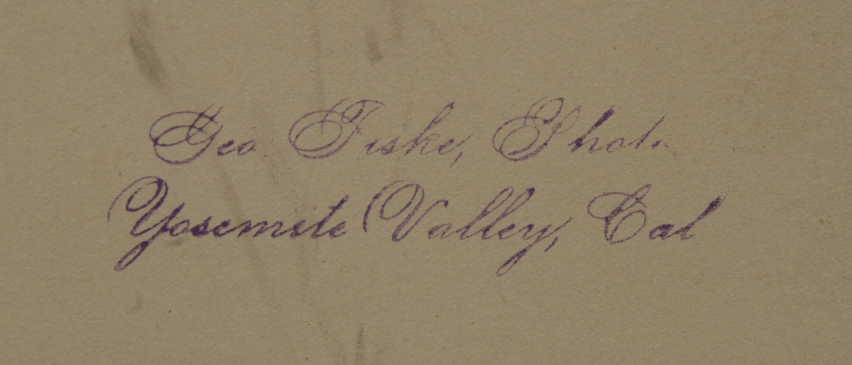 Geo. Fiske, Photo.
Yosemite Valley, Cal